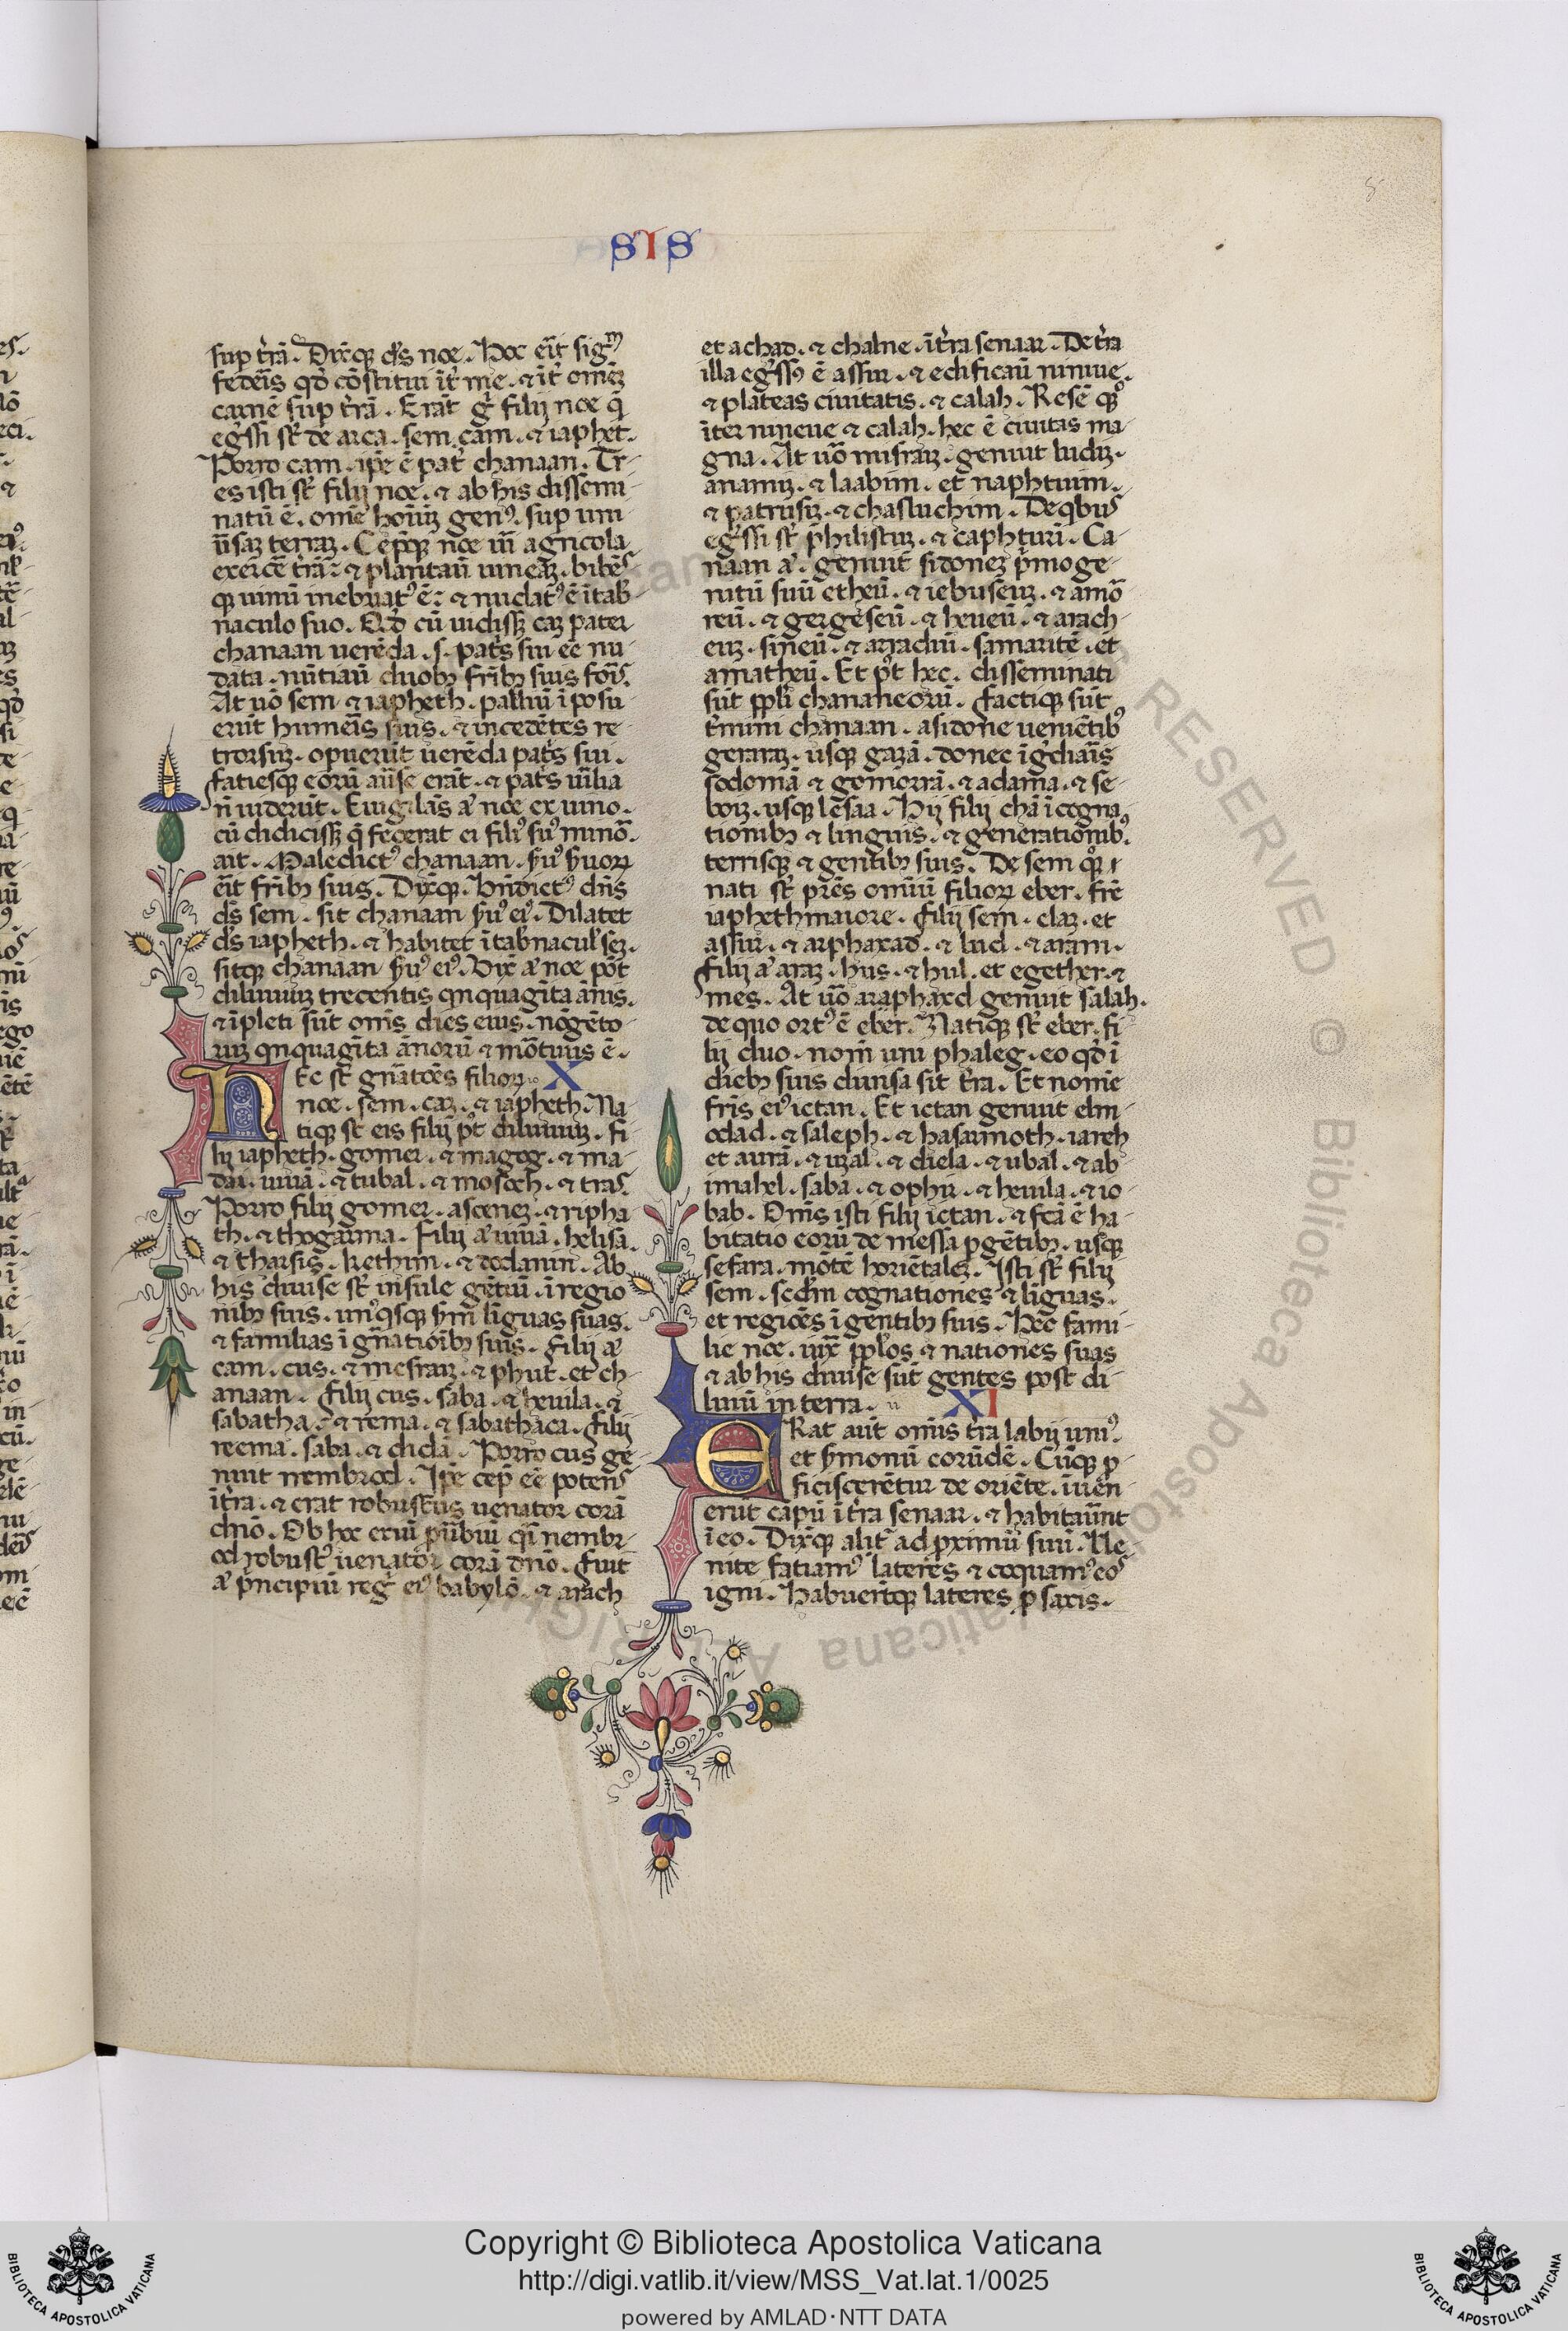 SIS
sup t̃rã. Dix̃q; d̃s noe. Hoc eĩt sigm̃
federis qd̃ cõstitui ĩt me. ⁊ ĩt omẽz
carnẽ sup t̃rã. Erãt g̃ filij noe q̃
eg̃ssi st̃ de arca. sem. cam. ⁊ iaphet.
Porro cam. ip̃e ẽ pat̃ chanaan. Tr-
es isti st̃ filij noe. ⁊ ab his dissemi-
natũ ẽ. omẽ hoĩuz gen⁹. sup uni-
ũsaz terraz. Cepitq; noe uir̃ agricola
exercẽ t̃rã: ⁊ plantaũ uineaz. bibẽs
q; uinũ inebriat⁹ ẽ: ⁊ nudat⁹ ẽ ĩ tab̃-
naculo suo. Qd̃ cũ uidiss; caz pater
chanaan uerẽda .s. pat̃s sui eẽ nu-
data. nũtiaũ duobꝫ fr̃ibꝫ suis foris.
At uõ sem ⁊ iapheth. palliũ ĩposu-
erũt humeris suis. ⁊ incedẽtes re-
trorsuz. opuerũt uerẽda pat̃s sui.
fatiesq; eorũ aũse erãt. ⁊ pat̃s uir̃lia
ñ uiderũt. Euigilãs aͤ noe ex uino.
cũ didiciss; q̃ fecerat ei fili⁹ su⁹ minõr.
ait. Maledict⁹ chanaan. s̃u⁹ s̃uoꝝ
eĩt fr̃ibꝫ suis. Dix̃q;. Bñdict⁹ dñs
d̃s sem. sit chanaan s̃u⁹ ei⁹. Dilatet
d̃s iapheth. ⁊ habitet ĩ tab̃nacul̃ sez.
sitq; chanaan s̃u⁹ ei⁹. Vix̃ aͤ noe põt
diluuiuz trecentis qnquagĩta ãnis.
⁊ ĩpleti sũt om̃s dies eius. nõgẽto-
ruz qnquagĩta ãnorũ ⁊ mõtuus ẽ.
HEc st̃ gñatões filioꝝ X
noe. sem. caz. ⁊ iapheth. Na-
tiq; st̃ eis filij p̃t diluuiuz. fi-
lij iapheth. gomer. ⁊ magog. ⁊ ma-
dai. iuuã. ⁊ tubal. ⁊ mosoch. ⁊ tras.
Porro filij gomer. ascenez. ⁊ ripha-
th. ⁊ thogarma. Filij aͤ iuuã. helisã.
⁊ tharsis. kethim. ⁊ dodanin. Ab
his diuise st̃ insule gẽtiũ. ĩ regio
nibꝫ suis. un⁹qsq; s̃m lĩguas suas.
⁊ familias ĩ gñatioĩbꝫ suis. filij aͤ
cam. cus. ⁊ mesraiz. ⁊ phut. et ch-
anaan. filij cus. saba. ⁊ heuila. ⁊
sabatha. ⁊ rema. ⁊ sabathaca. filij
reema. saba. ⁊ didã. Porro cus ge-
nuit nembrod. Ip̃e cep̃ eẽ potens
ĩ t̃ra. ⁊ erat robustus uenator corã
dnõ. Ob hoc exiuĩ pũbiuĩ q̃i nembr-
od robust⁹ uenator corã dnõ. Fuit
aͤ p̃ncipiũ reg̃ ei⁹ babylõ. ⁊ arach
et achad. ⁊ chalne. ĩ t̃ra senaar. De t̃ra
illa eg̃ss⁹ ẽ assur. ⁊ edificaũ niniue.
⁊ plateas ciuitatis. ⁊ calah. Resẽ q̊q;
ĩter nineue ⁊ calah. hec ẽ ciuitas ma-
gna. At uõ misraiz. genuit ludiz.
anamiz. ⁊ laabim. et naphtuim.
⁊ patrusiz. ⁊ chasluchim. De qbus
eg̃ssi st̃ philistiz. ⁊ capħturi. Ca-
naan aͤ. genuit sidonez p̃moge-
nitũ suũ etheũ. ⁊ iebuseuz. ⁊ amõ-
reũ. ⁊ gergeseũ. ⁊ heueũ. ⁊ arach-
euz. sineũ. ⁊ arradiũ. samaritẽ. et
amatheũ. Et p̃t hec. disseminati
sũt ppli chananeorũ. Factiq; sũt
t̃mini chanaan. a sidone ueniẽtibꝫ
geraraz. usq; gazã. donec ĩg̃diaris
sodomã ⁊ gomorrã. ⁊ adama. ⁊ se-
boiz. usq; lesaa. Hij filij chã ĩ cogna
tionibꝫ ⁊ linguis. ⁊ generationibꝫ.
terrisq; ⁊ gentibꝫ suis. De sem q̊q;
nati st̃ pr̃es om̃iũ filioꝝ eber. fr̃e
iapheth maiore. filij sem. elaz. et
assur. ⁊ arphaxad. ⁊ lud. ⁊ aram.
filij aͤ araz. hus. ⁊ hul. et egether. ⁊
mes. At uõ araphaxd genuit salah.
de quo ort⁹ ẽ eber. Natiq; st̃ eber. fi-
lij duo. nom̃ uni phaleg. eo qd̃ ĩ
diebꝫ suis diuisa sit t̃ra. Et nomẽ
fr̃is ei⁹ ictan. Et ictan genuit elm-
odad. ⁊ saleph. ⁊ hasarmoth. iareh
et aurã. ⁊ uzal. ⁊ diela. ⁊ ubal. ⁊ ab-
imahel. saba. ⁊ ophir. ⁊ heuila. ⁊ io-
bab. Om̃s isti filij ictan. ⁊ fcã ẽ ha-
bitatio eorũ de messa pgẽtibꝫ. usq;
sefara. mõtẽ horiẽtalez. Isti st̃ filij
sem. sedm̃ cognationes ⁊ lĩguas.
et regiões ĩ gentibꝫ suis. Hec̃ fami-
lie noe. iux̃ ppl̃os ⁊ nationes suas
⁊ ab his diuise sũt gentes post di-
luuiũ in terra. XI
ERat aũt omĩs t̃ra labij uni⁹.
et s̃monũ eorũdẽ. Cũq; p-
ficiscerẽtur de oriẽte. ĩuẽn-
erũt cãpũ ĩ t̃ra senaar. ⁊ habitaũnt
ĩ eo. Dix̃q; alit̃ ad pximũ suũ. Ve-
nite fatiam⁹ lateres ⁊ coquam⁹ eos
igni. Habuerũtq; lateres p saxis.
Copyright © Biblioteca Apostolica Vaticana
http://digi.vatlib.it/view/MSS_Vat.lat.1/0025
powered by AMLAD · NTT DATA
BIBLIOTECA APOSTOLICA VATICANA
BIBLIOTECA APOSTOLICA VATICANA